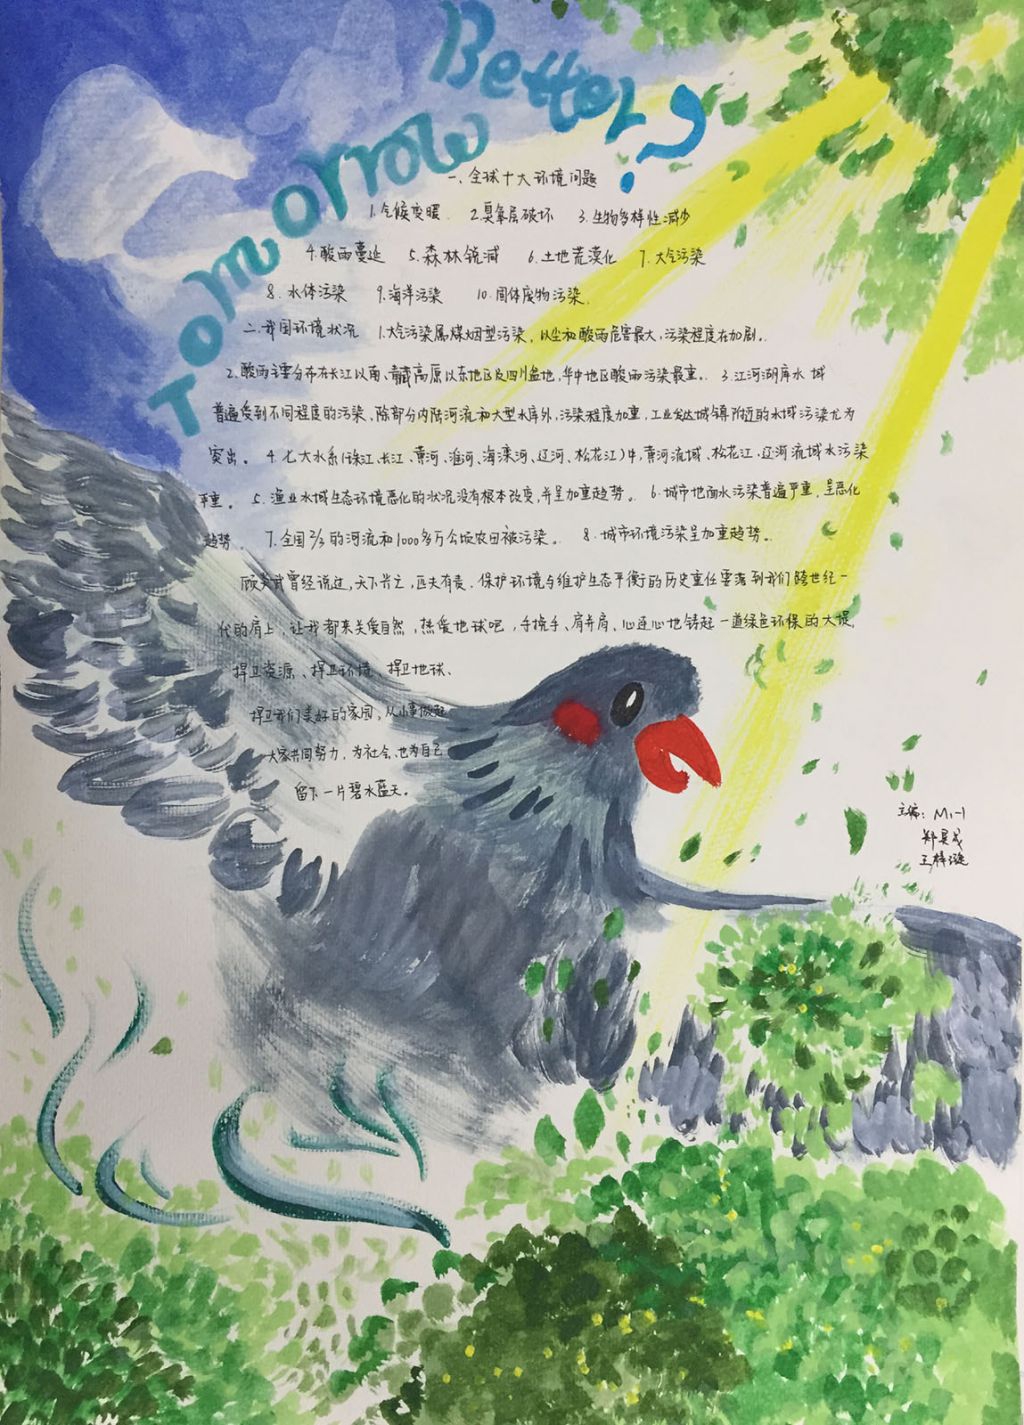 Better
Tomorrow ?
一、全球十大环境问题
1.气候变暖 2.臭氧层破坏 3.生物多样性减少
4.酸雨蔓延 5.森林锐减 6.土地荒漠化 7.大气污染
8.水体污染 9.海洋污染 10.固体废物污染.
二.我国环境状况 1.大气污染属煤烟型污染，以尘和酸雨危害最大，污染程度在加剧。
2.酸雨主要分布在长江以南、青藏高原以东地区及四川盆地，华中地区酸雨污染最重。 3.江河湖库水域
普遍受到不同程度的污染，除部分内陆河流和大型水库外，污染程度加重，工业发达城镇附近的水域污染尤为
突出。 4.七大水系(珠江、长江、黄河、淮河、海滦河、辽河、松花江)中，黄河流域、松花江、辽河流域水污染
严重。 5.渔业水域生态环境恶化的状况没有根本改变，并呈加重趋势。 6.城市地面水污染普遍严重，呈恶化
趋势。 7.全国2/3的河流和1000多万公顷农田被污染。 8.城市环境污染呈加重趋势。
顾炎武曾经说过，天下兴亡，匹夫有责。保护环境与维护生态平衡的历史重任要落到我们跨世纪一
代的肩上，让我都来关爱自然，热爱地球吧，手挽手、肩并肩、心连心地铸起一道绿色环保的大堤，
捍卫资源、捍卫环境、捍卫地球、
捍卫我们美好的家园，从小事做起
大家共同努力，为社会，也为自己
留下一片碧水蓝天。
主编：M1-1